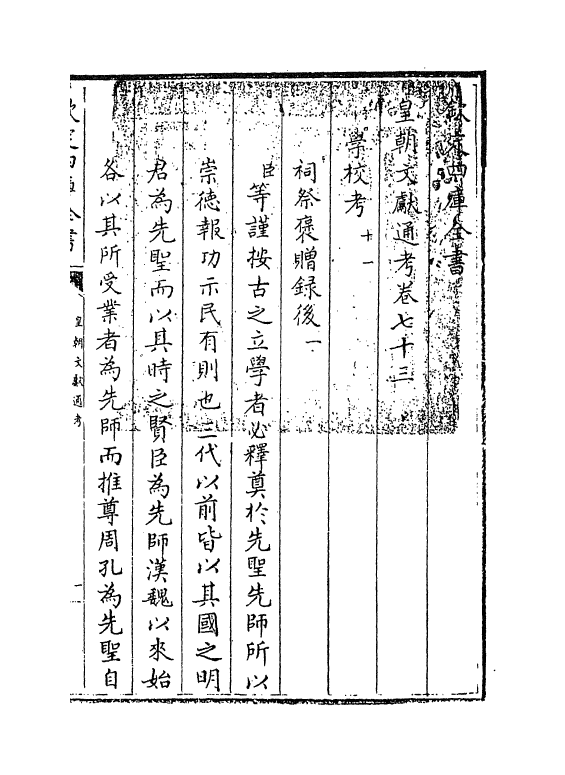 欽定四庫全書
皇朝文獻通考卷七十三
學校考十一
祠祭褒贈録後一
臣等謹按古之立學者必釋奠於先聖先師所以
崇徳報功示民有則也三代以前皆以其國之明
君為先聖而以其時之賢臣為先師漢魏以來始
各以其所受業者為先師而推尊周孔為先聖自
欽定四庫全書
皇朝文獻通考
一